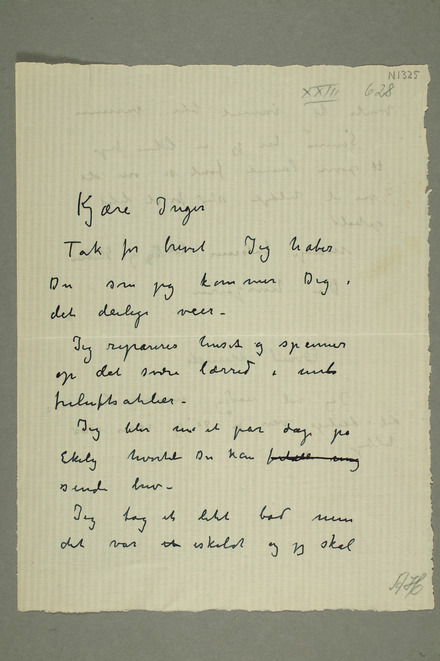 N1325
XXIII 628
Kjære Inger
Tak for brevet Jeg haaber
Du som jeg kommer Dig i
det deilige veir –
Jeg repareres huset og spenner
op det svære lærred i mit
friluftsatelier –
Jeg blir nu et par dage på
Ekely hvortil Du kan
sende brev –
Jeg tog et litet bad men
det var iskoldt og jeg skal